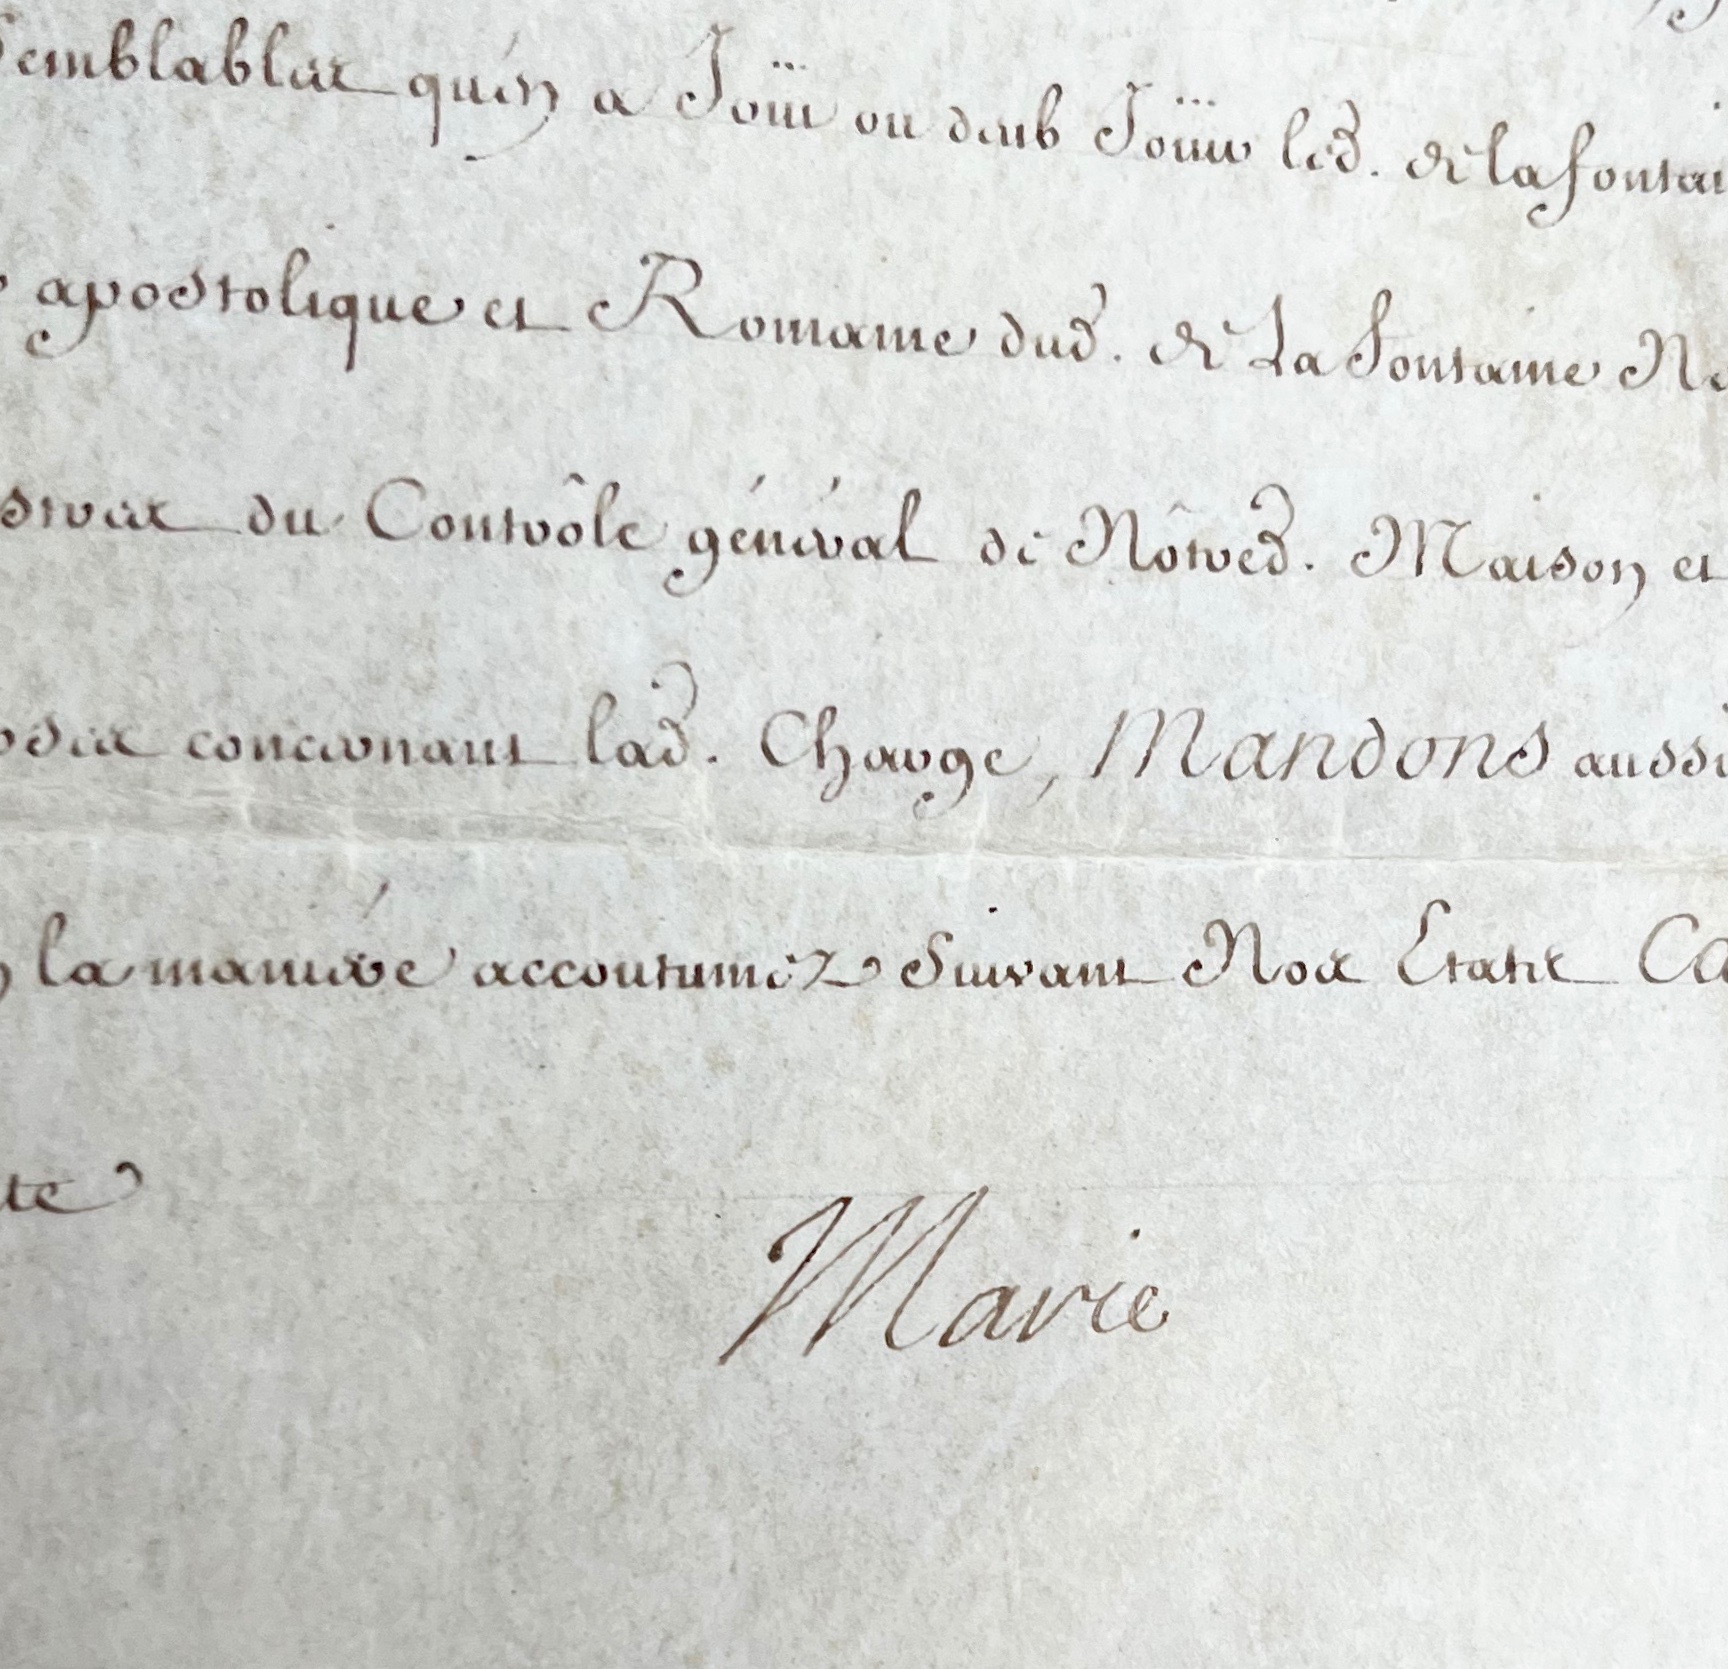 Semblables qu'en a Joüi ou deub Joüir led. de lafontai
apostolique et Romaine dud. de La fontaine No
stres du Contrôle général de Nôtred. Maison et
concernant lad. Charge, Mandons aussi
la maniére accoutumez Suivant Nos Etats Ca
te
Marie